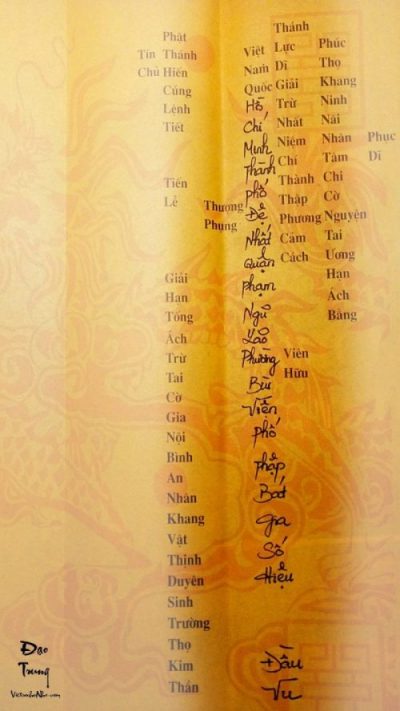 Phục Dĩ
Phúc Thọ Khang Ninh Nãi Nhân Tâm Chi Cờ Nguyện Tai Ương Hạn Ách Bằng
Thánh Lực Dĩ Giải Trừ Nhất Niệm Chí Thành Thập Phương Cảm Cách Viên Hữu
Việt Nam Quốc Hồ Chí Minh Thành phố Đệ Nhất Quận phạm Ngũ Lão Phường Bùi Viện phố pháp Bát gia Số Hiệu Đầu Vu
Thượng Phụng
Phật Thánh Hiến Cúng Lệnh Tiết Tiến Lễ Giải Hạn Tống Ách Trừ Tai Cờ Gia Nội Bình An Nhân Khang Vật Thịnh Duyên Sinh Trường Thọ Kim Thần
Tín Chủ
Đạo Trung